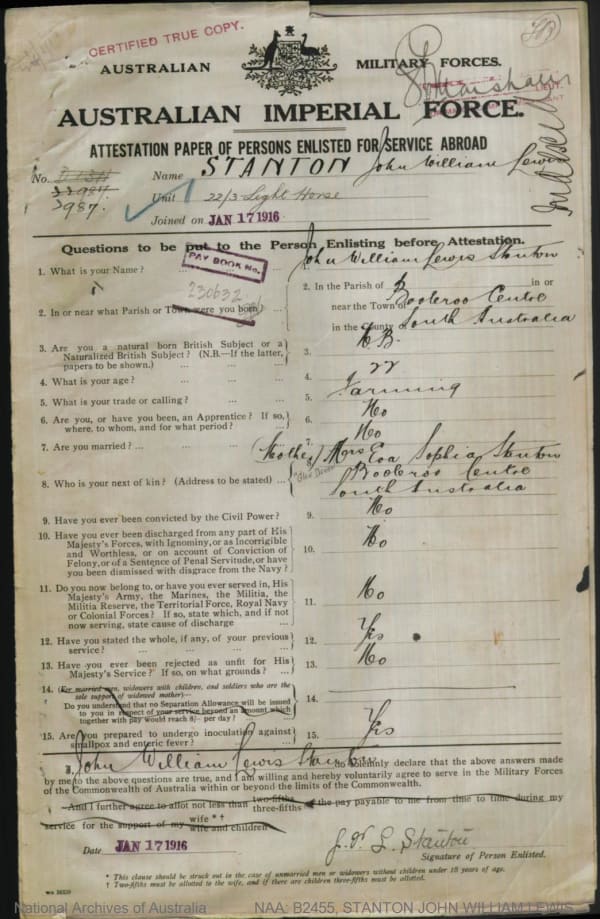 CERTIFIED TRUE COPY.
AUSTRALIAN MILITARY FORCES.
AUSTRALIAN IMPERIAL FORCE.
ATTESTATION PAPER OF PERSONS ENLISTED FOR SERVICE ABROAD
No. 3987. Name STANTON John William Lewis
Unit 22/3 Light Horse
Joined on JAN 17 1916
Questions to be put to the Person Enlisting before Attestation.
PAY BOOK No.
230632
1. What is your Name? ... John William Lewis Stanton
2. In or near what Parish or Town were you born? 2. In the Parish of in or
near the Town of Booleroo Centre
in the County South Australia
3. Are you a natural born British Subject or a
Naturalized British Subject? (N.B.—If the latter,
papers to be shown.) ... 3. N B.
4. What is your age? ... 4. 22
5. What is your trade or calling? ... 5. Farming
6. Are you, or have you been, an Apprentice? If so,
where, to whom, and for what period? ... 6. No
7. Are you married? ... 7. No
8. Who is your next of kin? (Address to be stated) ... (Mother) Mrs Eva Sophia Stanton
Booleroo Centre
South Australia
9. Have you ever been convicted by the Civil Power? 9. No
10. Have you ever been discharged from any part of His
Majesty's Forces, with Ignominy, or as Incorrigible
and Worthless, or on account of Conviction of
Felony, or of a Sentence of Penal Servitude, or have
you been dismissed with disgrace from the Navy? 10. No
11. Do you now belong to, or have you ever served in, His
Majesty's Army, the Marines, the Militia, the
Militia Reserve, the Territorial Force, Royal Navy
or Colonial Forces? If so, state which, and if not
now serving, state cause of discharge ... 11. No
12. Have you stated the whole, if any, of your previous
service? ... 12. Yes
13. Have you ever been rejected as unfit for His
Majesty's Service? If so, on what grounds? ... 13. No
14. (For married men, widowers with children, and soldiers who are the
sole support of widowed mother)—
Do you understand that no Separation Allowance will be issued
to you in respect of your service beyond an amount which
together with pay would reach 8/- per day? ... 14.
15. Are you prepared to undergo inoculation against
smallpox and enteric fever? ... 15. Yes
I, John William Lewis Stanton do solemnly declare that the above answers made
by me to the above questions are true, and I am willing and hereby voluntarily agree to serve in the Military Forces
of the Commonwealth of Australia within or beyond the limits of the Commonwealth.
And I further agree to allot not less than two-fifths three-fifths of the pay payable to me from time to time during my
service for the support of my wife * † wife and children
Date JAN 17 1916 J. W. L. Stanton
Signature of Person Enlisted.
* This clause should be struck out in the case of unmarried men or widowers without children under 18 years of age.
† Two-fifths must be allotted to the wife, and if there are children three-fifths must be allotted.
National Archives of Australia NAA: B2455, STANTON JOHN WILLIAM LEWIS